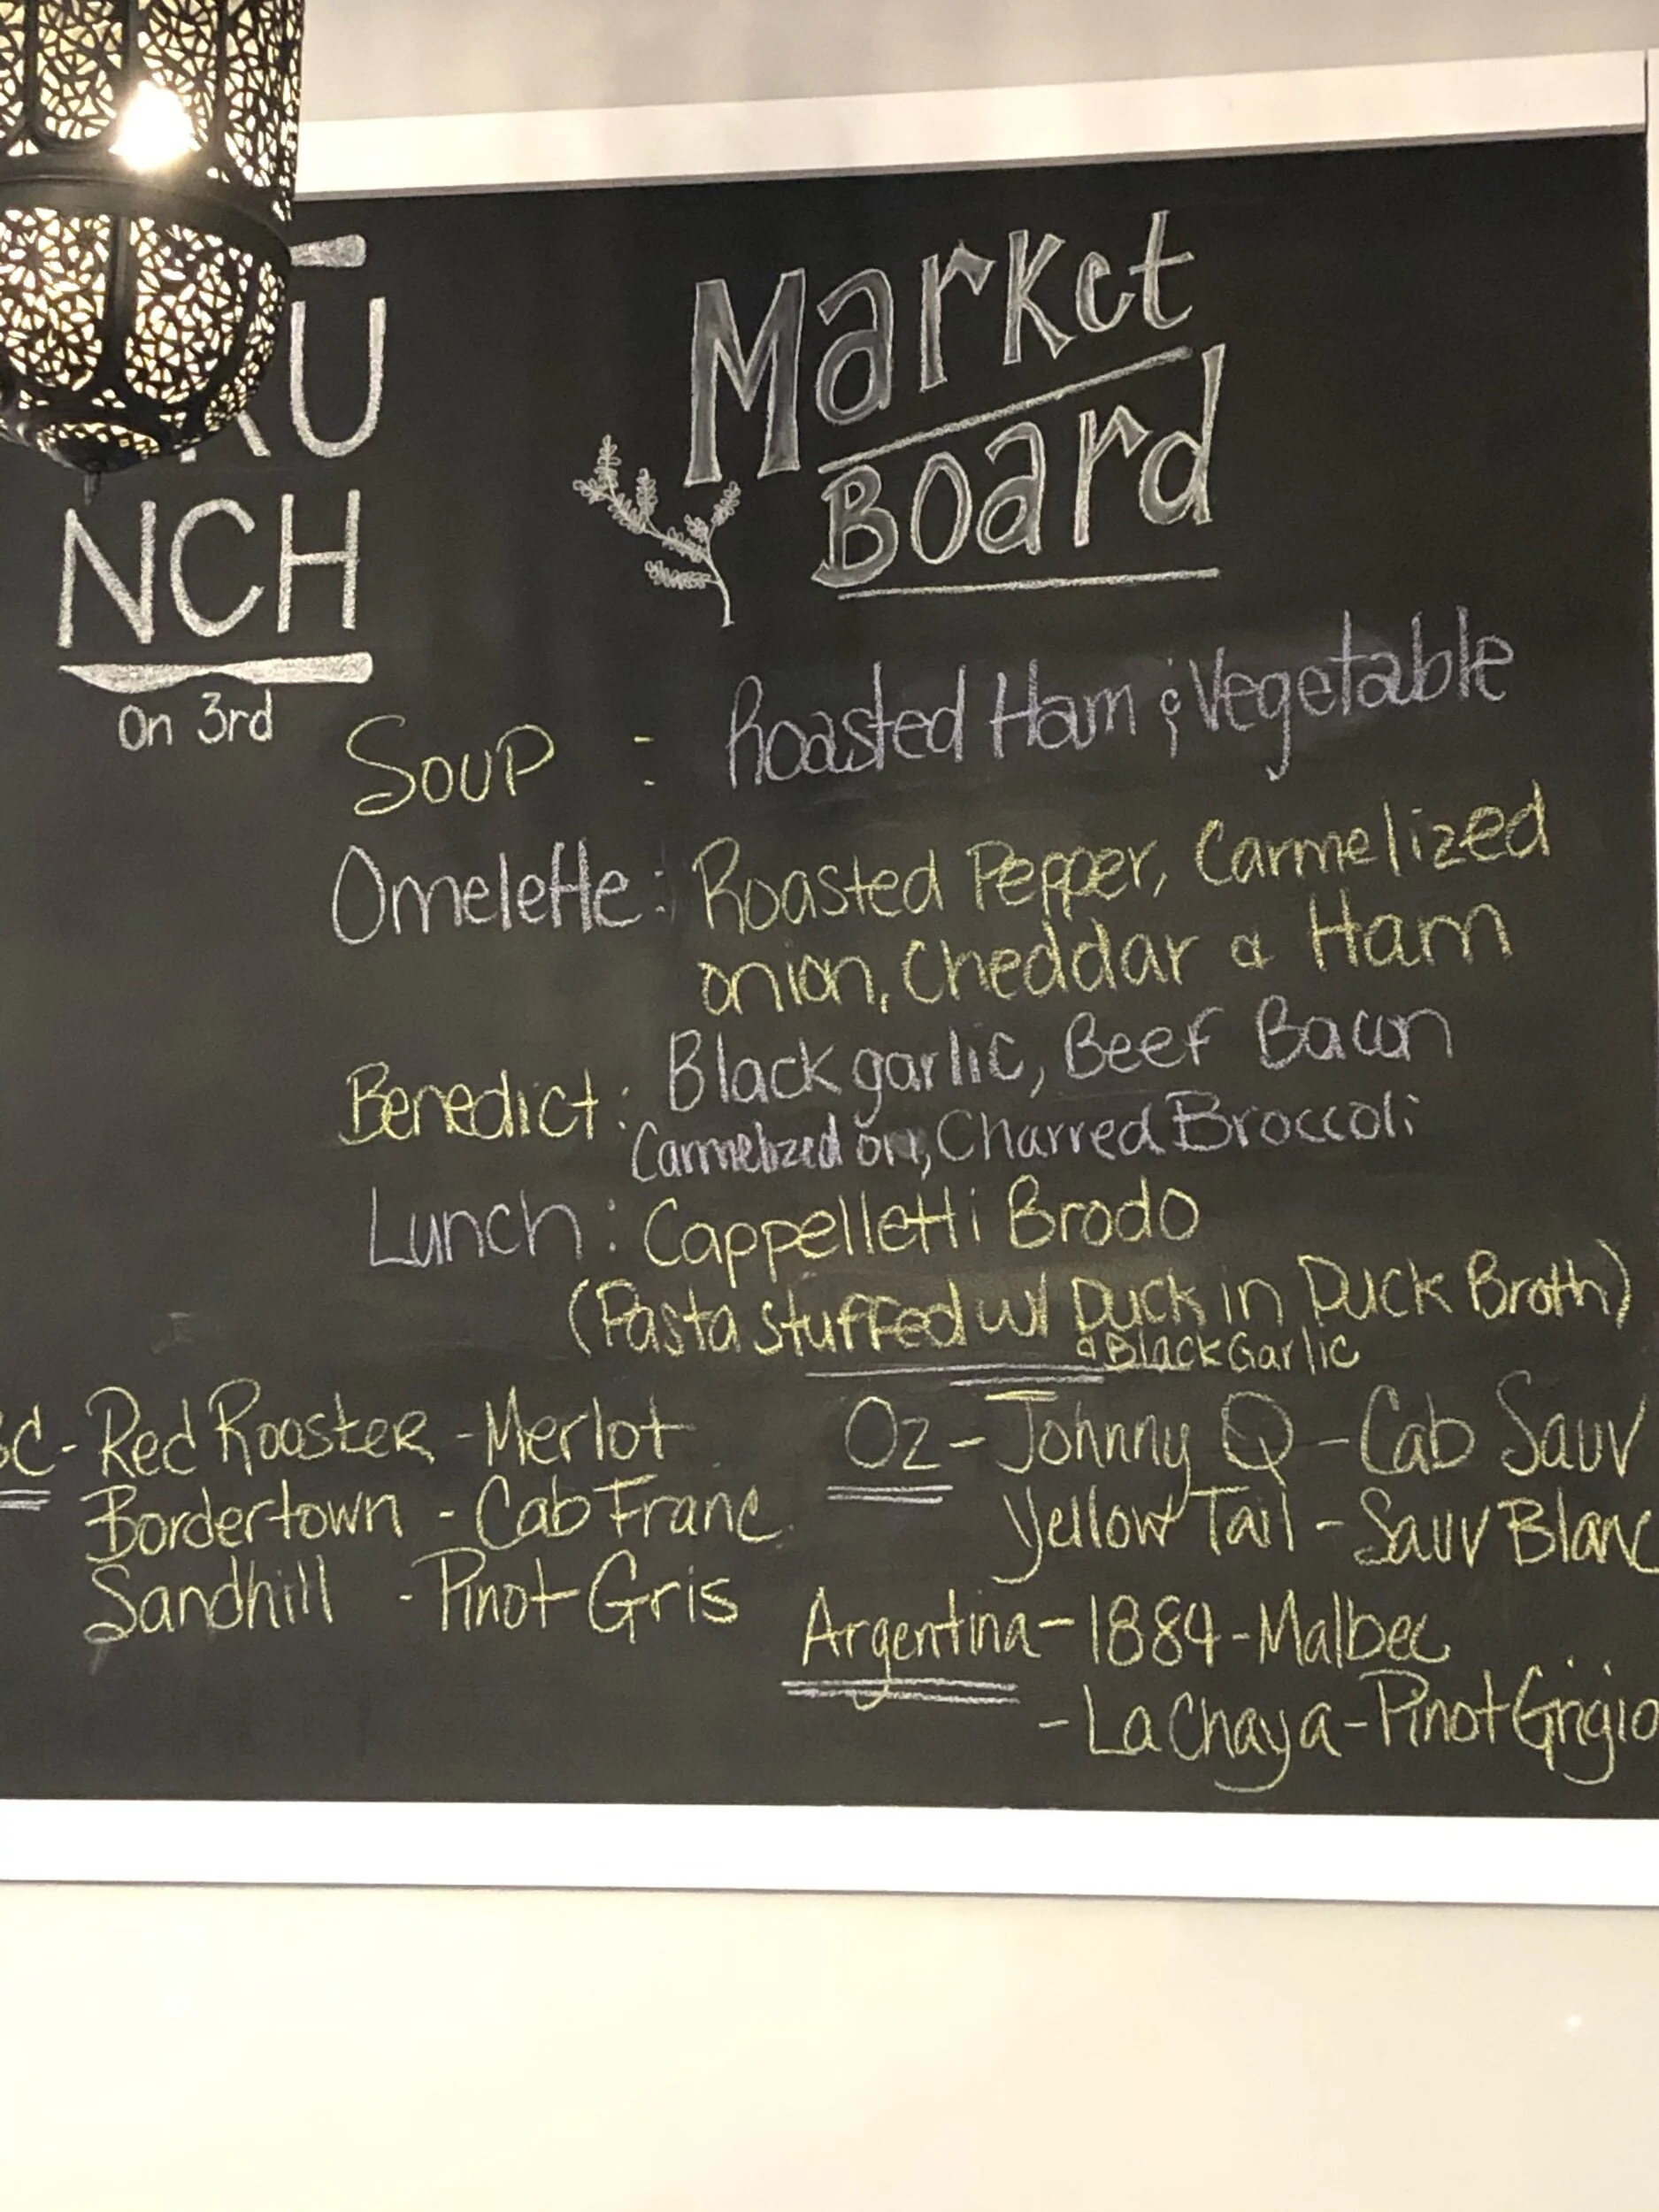 RU
NCH
on 3rd
Market
Board
Soup : Roasted Ham & Vegetable
Omelette: Roasted Pepper, Carmelized
onion, Cheddar & Ham
Benedict: Black garlic, Beef Bacon
Carmelized on, Charred Broccoli
Lunch: Cappelletti Brodo
(Pasta stuffed w/ Duck in Duck Broth)
& Black Garlic
BC - Red Rooster - Merlot
Bordertown - Cab Franc
Sandhill - Pinot Gris
Oz - Johnny Q - Cab Sauv
Yellow Tail - Sauv Blanc
Argentina - 1884 - Malbec
- La Chaya - Pinot Grigio